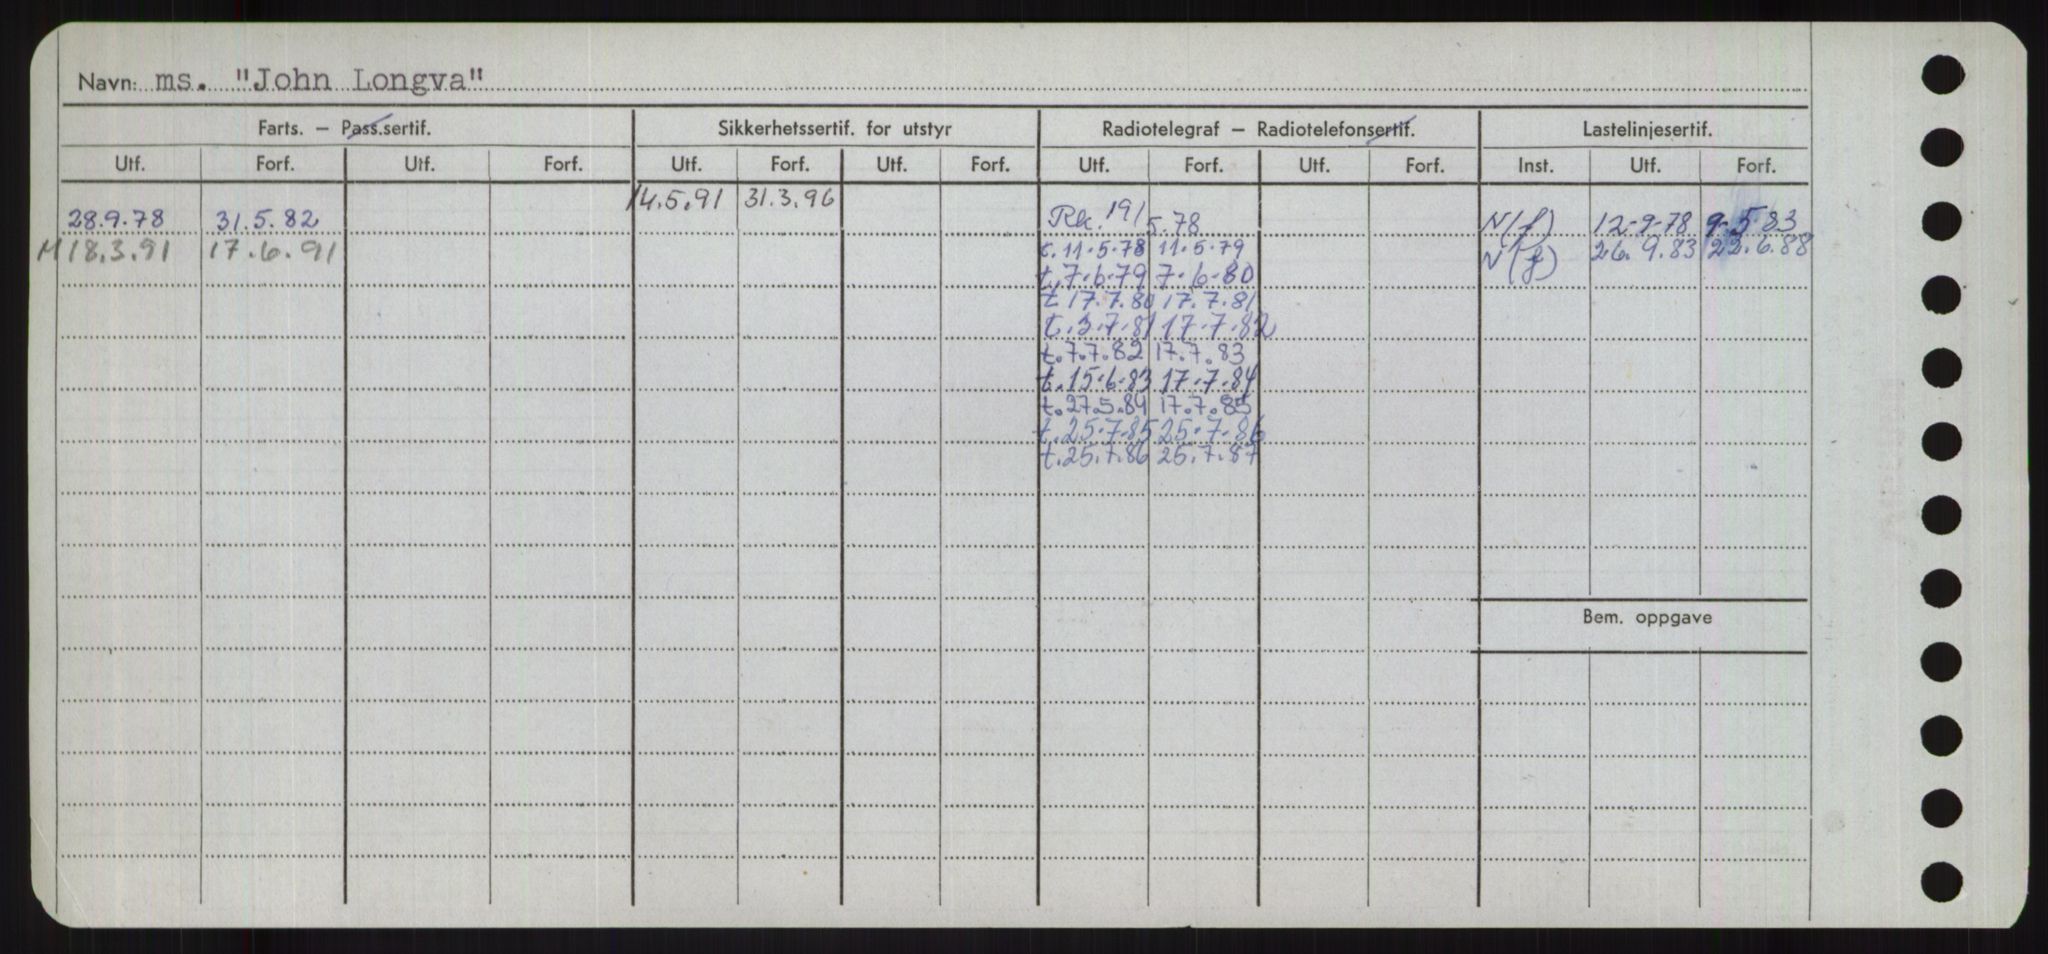 Navn: ms. "John Longva"
Farts. – Pass.sertif. Sikkerhetssertif. for utstyr Radiotelegraf – Radiotelefonsertif. Lastelinjesertif.
Utf. Forf. Utf. Forf. Utf. Forf. Utf. Forf. Utf. Forf. Utf. Forf. Inst. Utf. Forf.
14.5.91 31.3.96
28.9.78 31.5.82 Rk. 19/5.78 N(f) 12-9-78 9.5.83
M 18.3.91 17.6.91 t.11.5.78 11.5.79 N(f) 26.9.83 22.6.88
t.7.6.79 7.6.80
t 17.7.80 17.7.81
t.3.7.81 17.7.82
t.7.7.82 17.7.83
t.15.6.83 17.7.84
t.27.5.84 17.7.85
t.25.7.85 25.7.86
t.25.7.86 25.7.87
Bem. oppgave